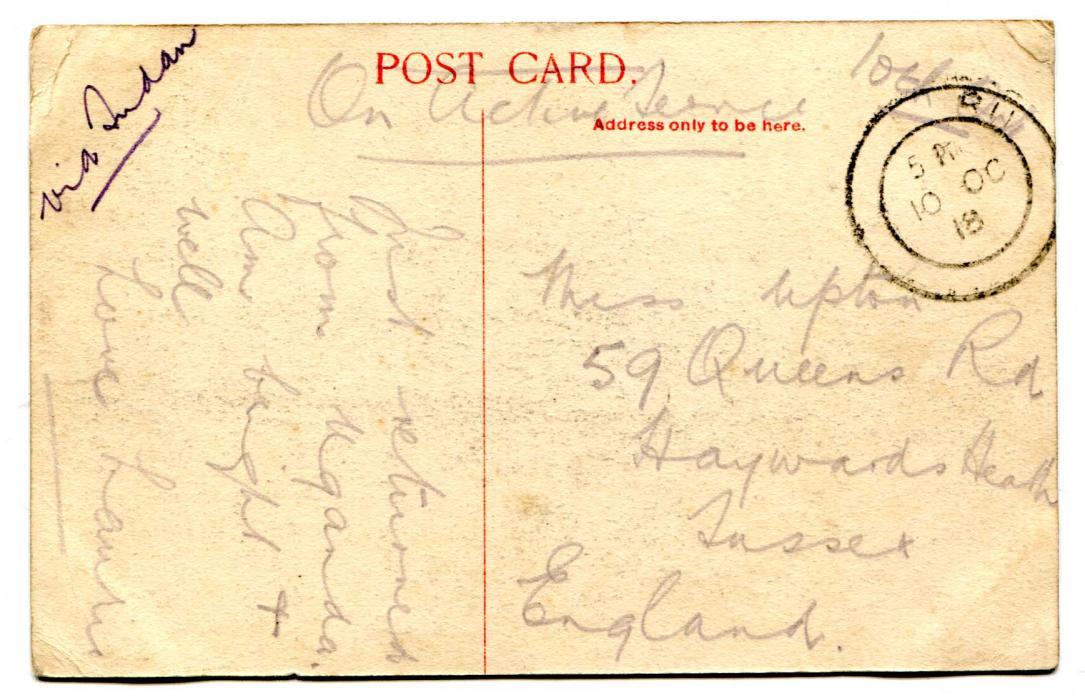 via Sudan
POST CARD.
On Active Service
10th
Address only to be here.
5 PM
10 OC
18
Just returned
from Uganda.
Am bright +
well
Love
Miss Upton
59 Queens Rd
Haywards Heath
Sussex
England.